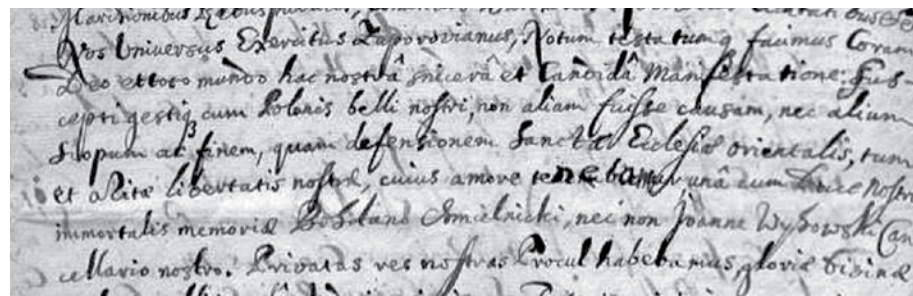 Marchionibus
Nos Universus Exercitus Zaporovianus, Notum testatumq facimus Coram
Deo et toto mundo hac nostrâ sincerâ et Candidâ Manifestatione. Sus-
cepti gestiq cum Polonis belli nostri, non aliam fuisse causam, nec alium
Scopum ac finem, quam defensionem Sanctæ Ecclesiæ orientalis, tum
et avitæ libertatis nostræ, cuius amore tenebamur, unâ cum Duce nostro
immortalis memoriæ Bohdano Chmielnicki, nec non Joanne Wyhowski Can
cellario nostro. Privatas res nostras Procul habebamus, gloriæ divinæ